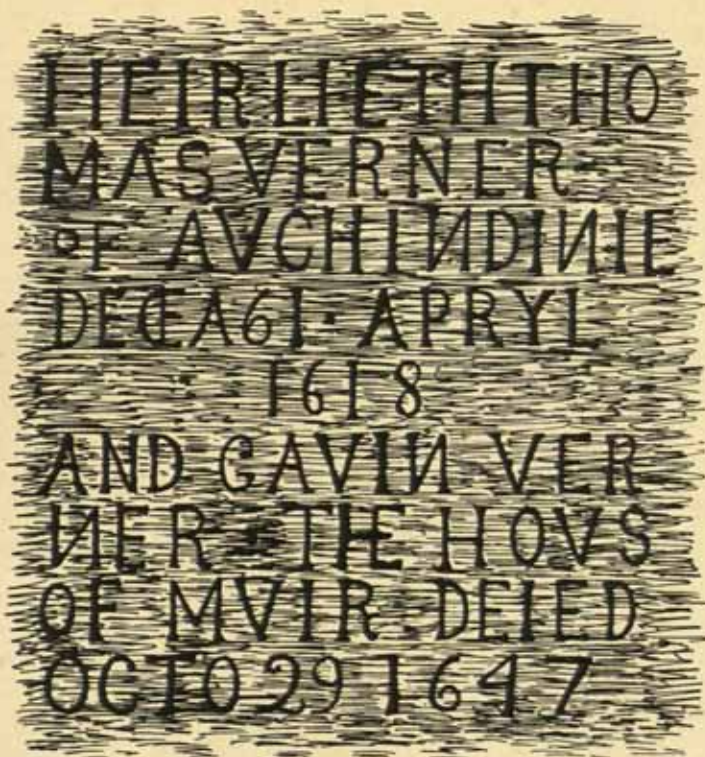 HEIR LIETH THO
MAS VERNER
OF AVCHINDINIE
DECƋA61·APRYL
1618
AND GAVIN VER
NER·THE HOVS
OF MVIR DEIED
OCTO 29 1647